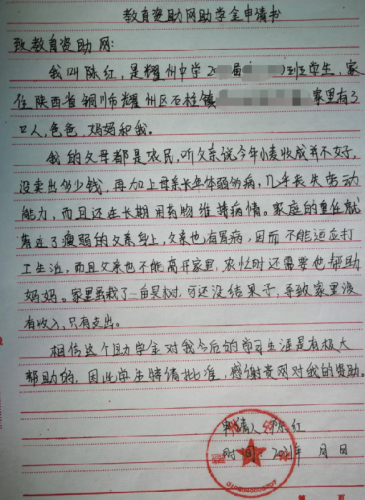 教育资助网助学金申请书
致教育资助网:
我叫陈红,是耀州中学2 届 班学生,家
住陕西省铜川市耀州区石柱镇 家里有3
口人,爸爸,妈妈和我。
我的父母都是农民,听父亲说今年小麦收成并不好,
没卖出多少钱,再加上母亲长年体弱多病,几乎丧失劳动
能力,而且还在长期用药物维持病情。家庭的重任就
落在了瘦弱的父亲身上,父亲也有胃病,因而不能适应打
工生活,而且父亲也不能离开家里,农忙时还需要他帮助
妈妈。家里虽栽了一亩果树,可还没结果子,导致家里没
有收入,只有支出。
相信这个助学金对我今后的学习生涯是有极大
帮助的,因此学生特请批准,感谢贵网对我的资助。
申请人:陈红
时间:2021年 月 日